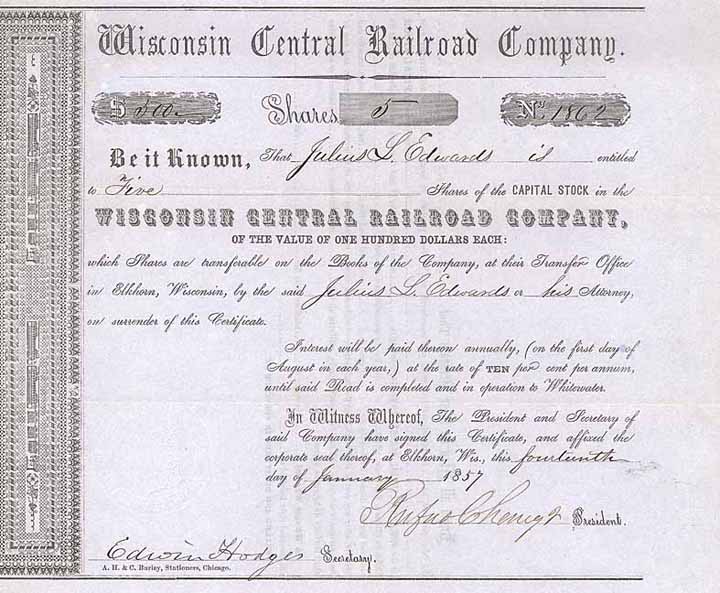 Wisconsin Central Railroad Company.
$ 500 Shares 5 No. 1862
Be it Known, That Julius L. Edwards is entitled
to Five Shares of the CAPITAL STOCK in the
WISCONSIN CENTRAL RAILROAD COMPANY,
OF THE VALUE OF ONE HUNDRED DOLLARS EACH:
which Shares are transferable on the Books of the Company, at their Transfer Office
in Elkhorn, Wisconsin, by the said Julius L. Edwards or his Attorney,
on surrender of this Certificate.
Interest will be paid thereon annually, (on the first day of
August in each year,) at the rate of TEN per cent per annum,
until said Road is completed and in operation to Whitewater.
In Witness Whereof, The President and Secretary of
said Company have signed this Certificate, and affixed the
corporate seal thereof, at Elkhorn, Wis., this fourteenth
day of January 1857
Rufus Cheney Jr President.
Edwin Hodges Secretary.
A. H. & C. Burley, Stationers, Chicago.